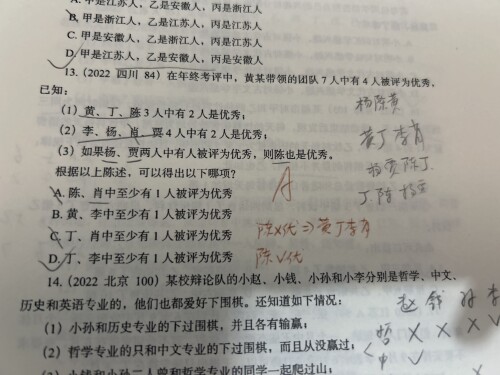 A. 甲是江苏人，乙是安徽人，丙是浙江人
B. 甲是浙江人，乙是江苏人，丙是安徽人
C. 甲是安徽人，乙是浙江人，丙是江苏人
D. 甲是江苏人，乙是浙江人，丙是安徽人
13.（2022 四川 84）在年终考评中，黄某带领的团队 7 人中有 4 人被评为优秀。
已知：
（1）黄、丁、陈 3 人中有 2 人是优秀；
杨陈黄
（2）李、杨、肖、贾 4 人中有 2 人是优秀；
黄丁李肖
（3）如果杨、贾两人中有人被评为优秀，则陈也是优秀。
杨贾陈丁
根据以上陈述，可以得出以下哪项？
A
丁陈杨
A. 陈、肖中至少有 1 人被评为优秀
B. 黄、李中至少有 1 人被评为优秀
陈X优⇒黄丁李肖
C. 丁、肖中至少有 1 人被评为优秀
D. 丁、李中至少有 1 人被评为优秀
陈V优
14.（2022 北京 100）某校辩论队的小赵、小钱、小孙和小李分别是哲学、中文、
历史和英语专业的，他们也都爱好下围棋。还知道如下情况：
赵 钱 孙 李
（1）小孙和历史专业的下过围棋，并且各有输赢；
哲 X X X V
（2）哲学专业的只和中文专业的下过围棋，而且从没赢过；
中 V
（3）小钱和小孙二人曾和哲学专业的同学一起爬过山；